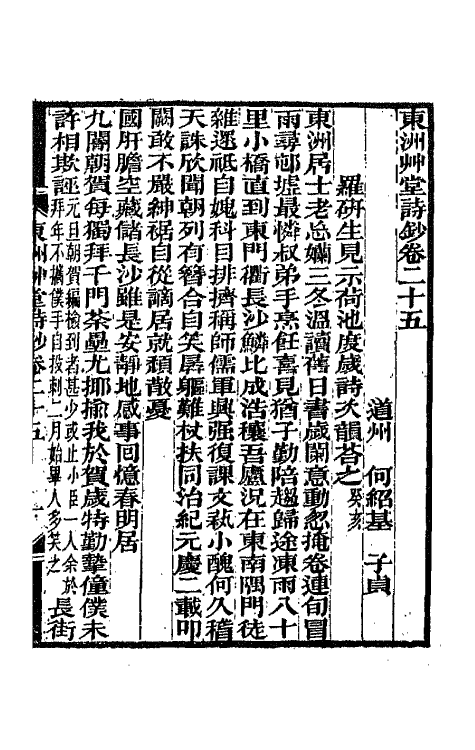 東洲艸堂詩鈔卷二十五
道州　何紹基　子貞
羅硏生見示荷池度歲詩次韻荅之癸亥
東洲居士老怠嬾三冬溫讀舊日書歲闌意動忽掩卷連旬冒
雨尋邨墟最憐叔弟手烹飪喜見猶子勤陪趨歸途凍雨八十
里小橋直到東門衢長沙鱗比成浩穰吾廬況在東南隅門徒
雜遝祇自媿科目排擠稱師儒軍興强復課文執小醜何久稽
天誅欣聞朝列有簪合自笑孱軀難杖扶同治紀元慶二載叩
闕敢不嚴紳裾自從謫居就頹散憂
國肝膽空藏儲長沙雖是安靜地感事回憶春明居
九闕朝賀每獨拜千門荼壘尤揶揄我於賀歲特勤摯僮僕未
許相欺誣元日朝賀編檢到者甚少或止小臣一人余於長街
拜年不攜僕手自投刺二月始畢人多笑之
東洲艸堂詩鈔卷二十五　一